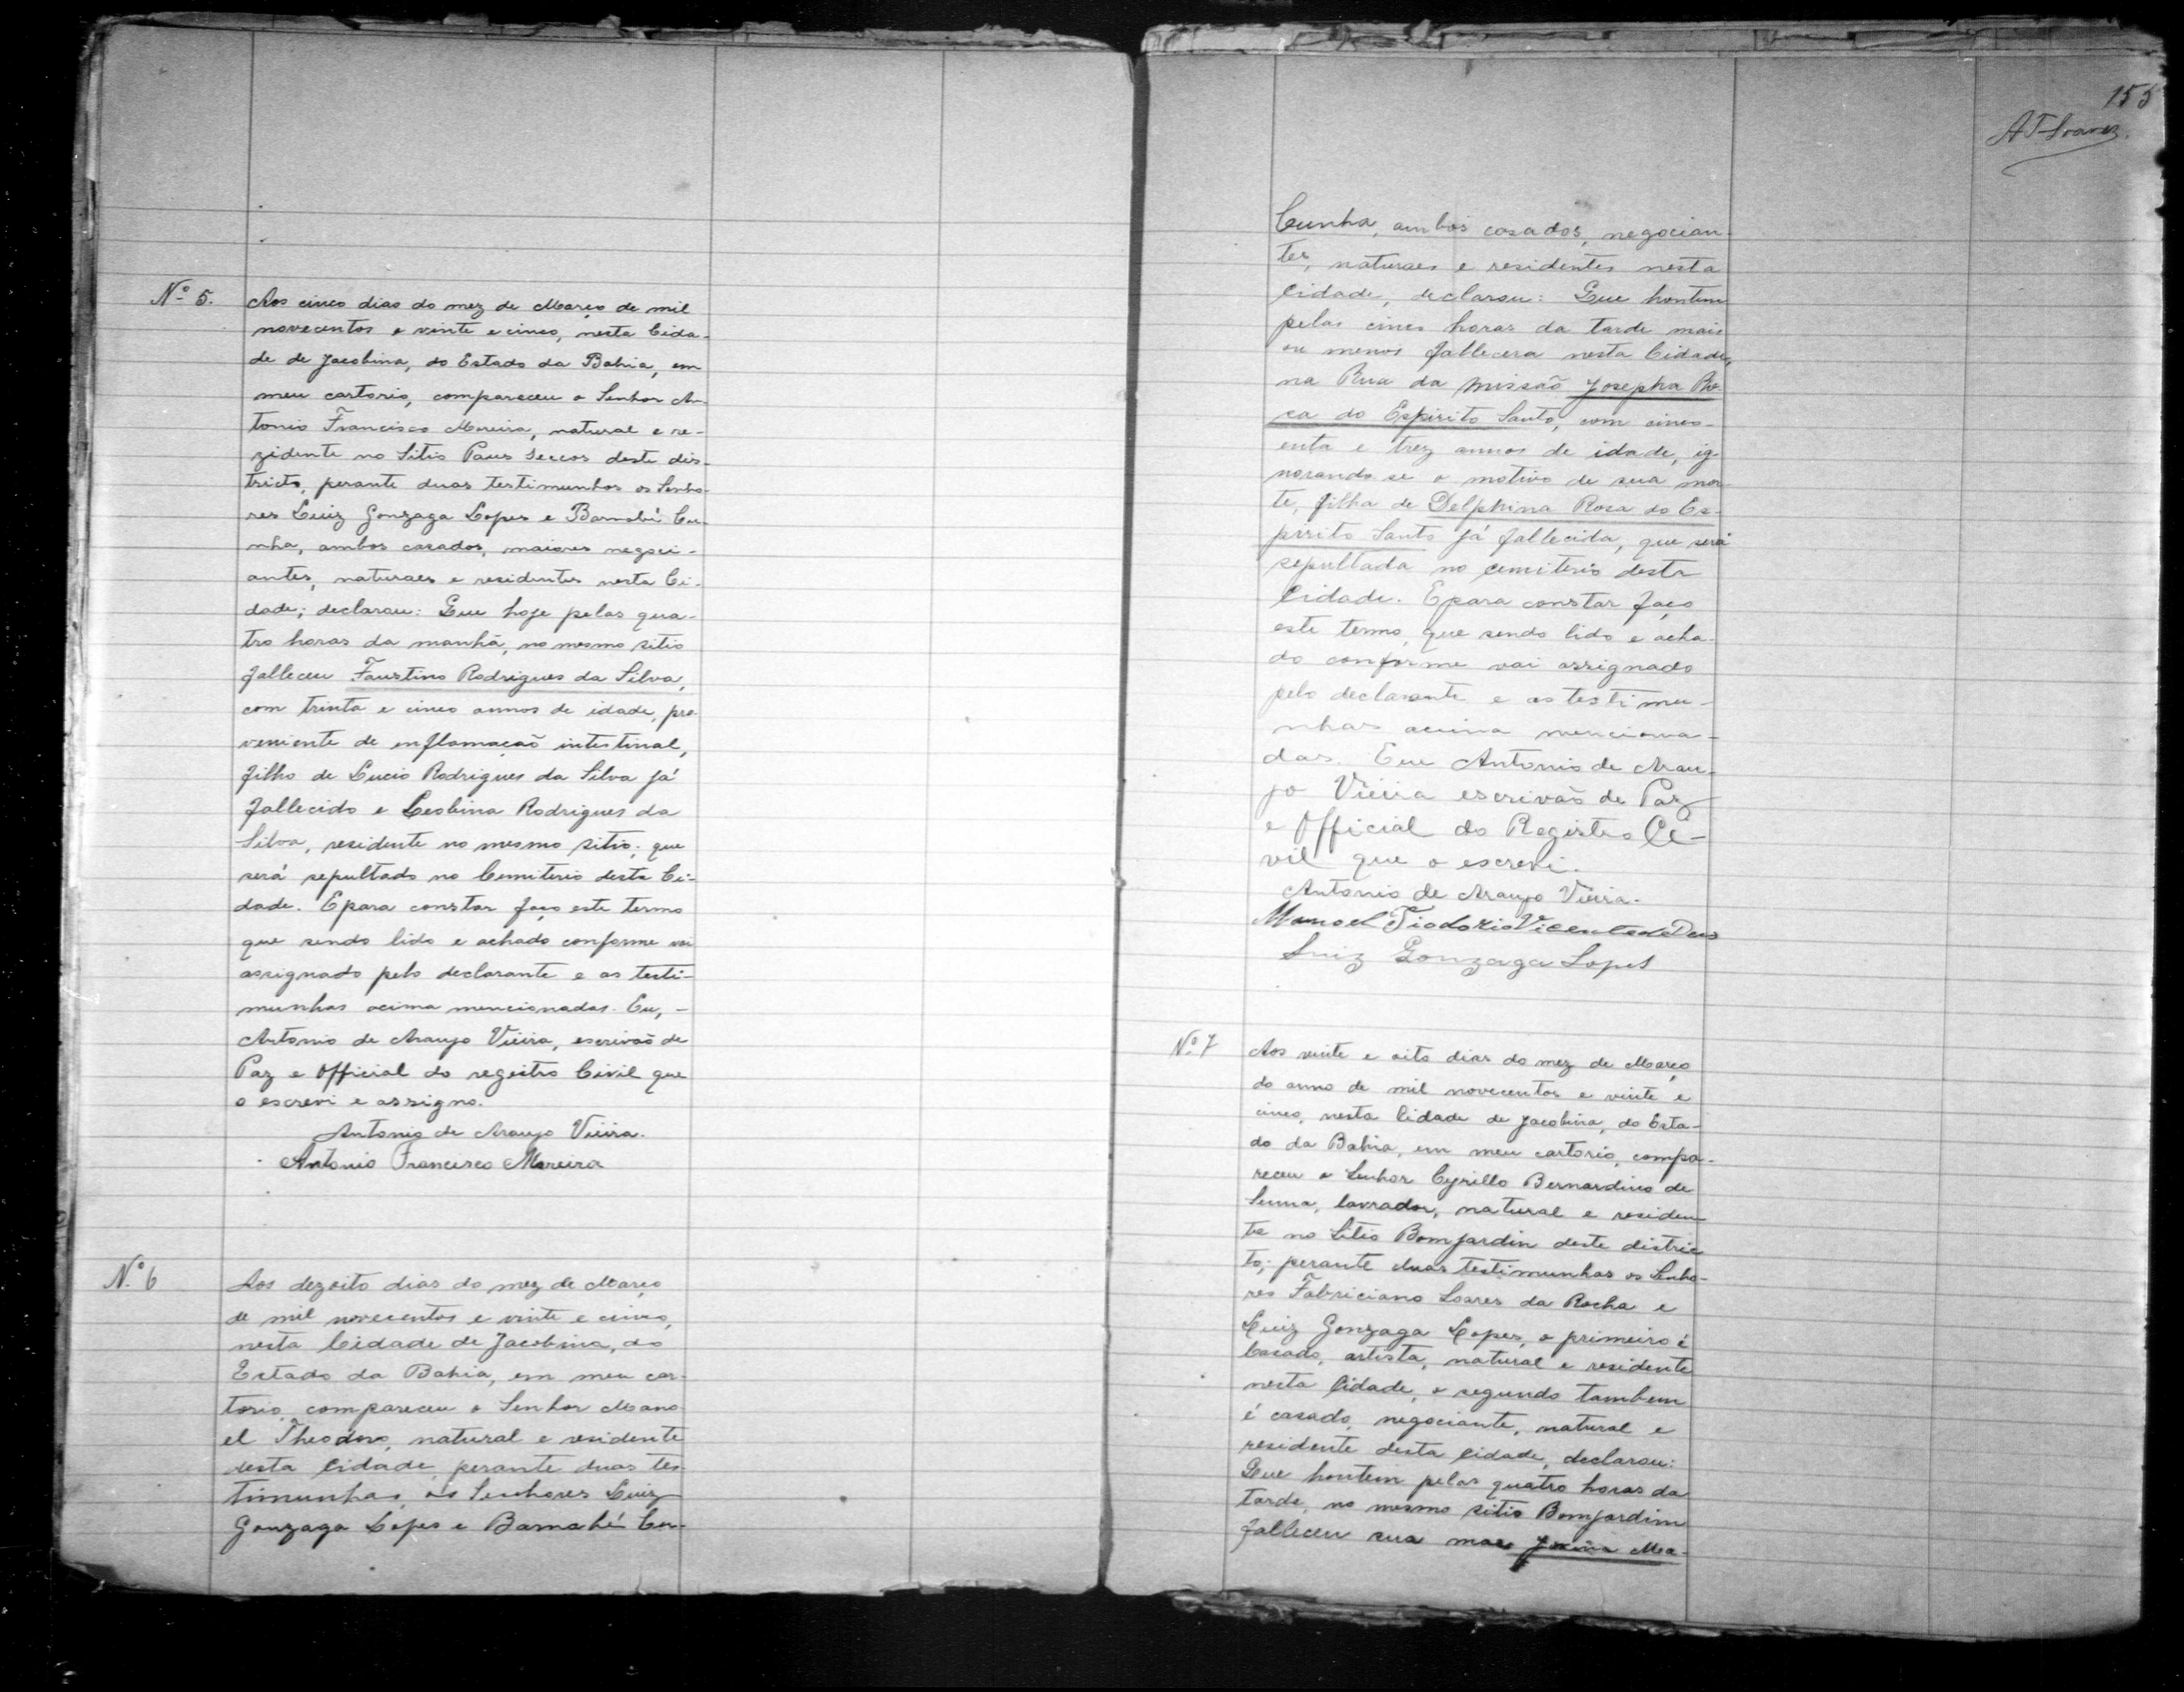 Nº 5.
Aos cinco dias do mez de Março de mil
novecentos e vinte e cinco, nesta Cida-
de de Jacobina, do Estado da Bahia, em
meu cartorio, compareceu o Senhor An-
tonio Francisco Moreira, natural e re-
zidente no Sitio Paus Seccos deste dis-
tricto, perante duas testimunhas os Senho-
res Luiz Gonzaga Lopes e Barnabé Cu-
nha, ambos casados, maiores negoci-
antes, naturaes e residentes nesta Ci-
dade; declarou: Que hoje pelas qua-
tro horas da manhã, no mesmo sitio
falleceu Faustino Rodrigues da Silva,
com trinta e cinco annos de idade, pro-
veniente de enflamação intestinal,
filho de Lucio Rodrigues da Silva já
fallecido e Leobina Rodrigues da
Silva, residente no mesmo sitio; que
será sepultado no Cemiterio desta Ci-
dade. E para constar faço este termo
que sendo lido e achado conforme vai
assignado pelo declarante e as testi-
munhas acima mencionadas. Eu, -
Antonio de Araujo Vieira, escrivão de
Paz e Official do registro Civil que
o escrevi e assigno.
Antonio de Araujo Vieira.
Antonio Francisco Moreira
Nº 6
Aos dezoito dias do mez de Março
de mil novecentos e vinte e cinco,
nesta Cidade de Jacobina, do
Estado da Bahia, em meu car-
torio, compareceu o Senhor Mano
el Theodoro, natural e residente
desta Cidade, perante duas tes-
timunhas, os Senhores Luiz
Gonzaga Lopes e Barnabé Cu-
155
A T Soares.
Cunha, ambos casados, negocian-
tes, naturaes e residentes nesta
Cidade, declarou: Que hontem
pelas cinco horas da tarde mais
ou menos fallecera nesta Cidade,
na Rua da Missão Josepha Ro-
sa do Espirito Santo, com cinco-
enta e trez annos de idade, ig-
norando-se o motivo de sua mor-
te, filha de Delphina Rosa do Es-
pirito Santo já fallecida, que será
sepultada no cemiterio desta
Cidade. E para constar faço
este termo, que sendo lido e acha-
do conforme vai assignado
pelo declarante e as testimu-
nhas acima menciona-
das. Eu Antonio de Arau-
jo Vieira escrivão de Paz
e Official do Registro Ci-
vil que o escrevi.
Antonio de Araujo Vieira.
Manoel Tiodorio Vicente de Deus
Luiz Gonzaga Lopes
Nº 7
Aos vinte e oito dias do mez de Março
do anno de mil novecentos e vinte e
cinco, nesta Cidade de Jacobina, do Esta-
do da Bahia, em meu cartorio, compa-
receu o Senhor Cyrillo Bernardino de
Senna, lavrador, natural e residen
te no Sitio Bomjardin deste distric
to; perante duas testimunhas os Senho-
res Fabriciano Soares da Rocha e
Luiz Gonzaga Lopes, o primeiro é
Casado, artista, natural e residente
nesta Cidade, o segundo tambem
é casado, negociante, natural e
residente desta Cidade, declarou:
Que hontem pelas quatro horas da
tarde, no mesmo sitio Bomjardim
falleceu sua mae Ma-